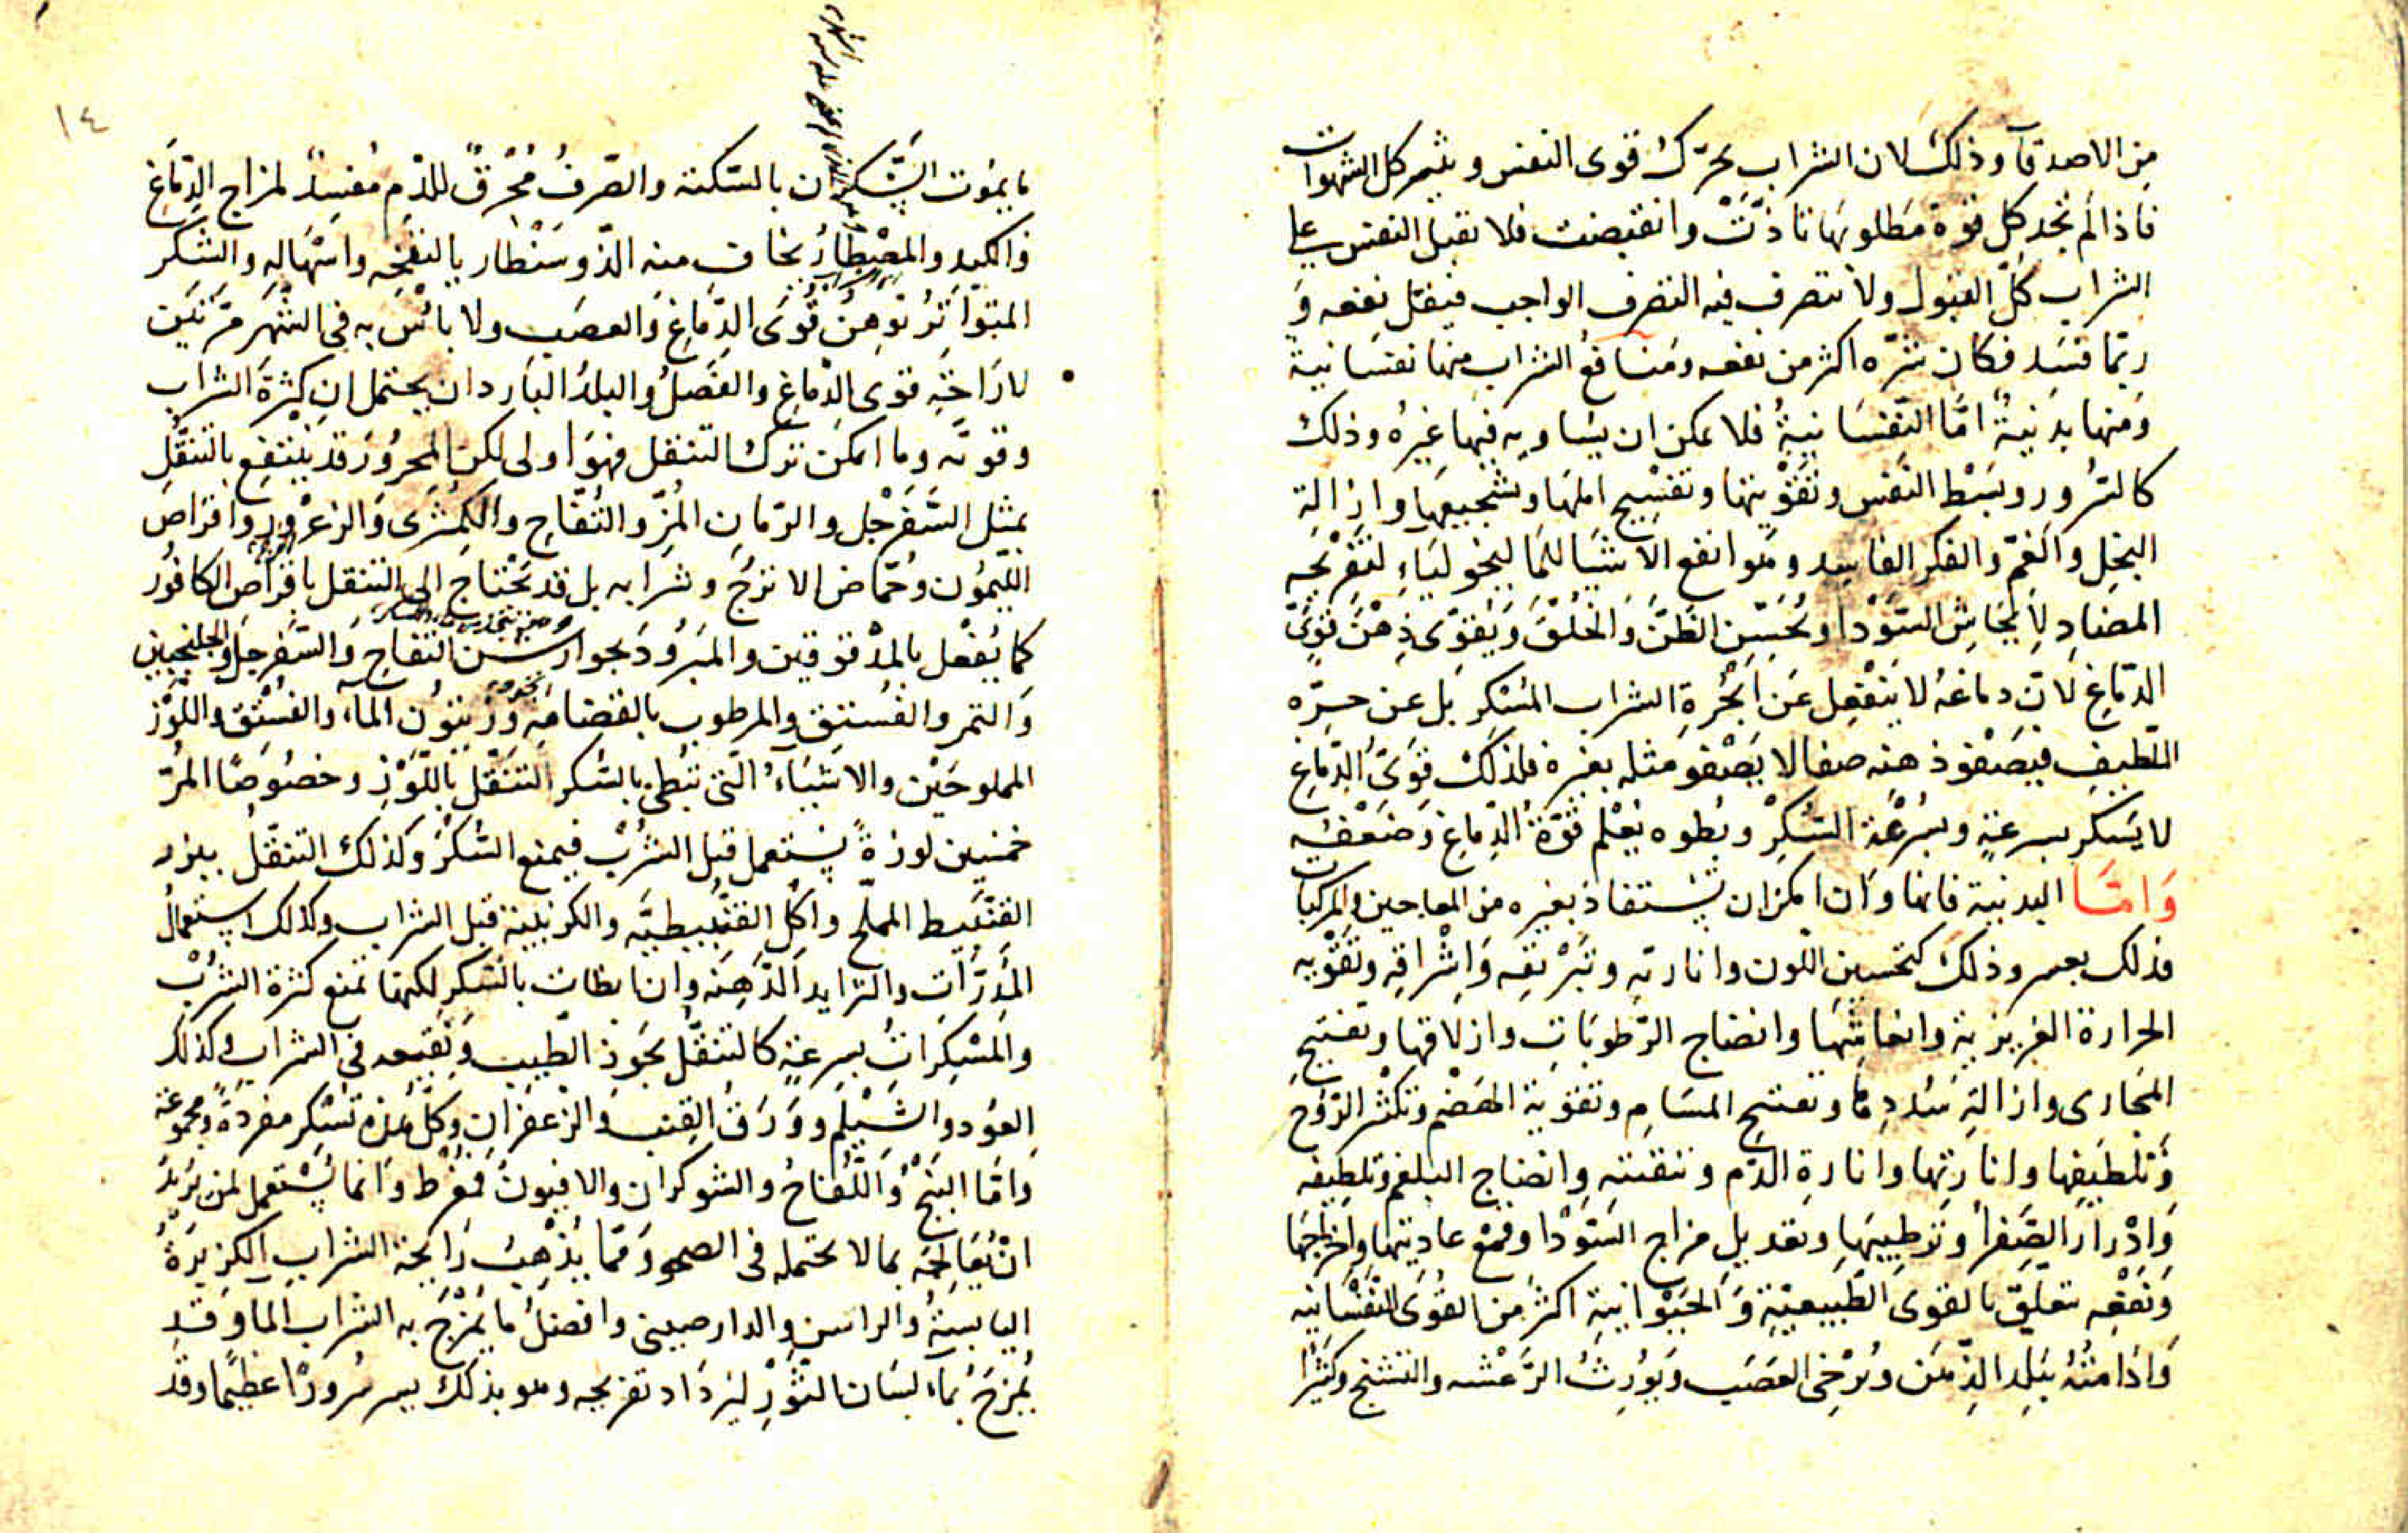 من الاصدقآ وذلك لان الشراب يحرّك قوى النفس ويثير كل الشهوات
فاذا لم تجد كل قوة مطلوبها تاذّت وانقبضت فلا تقبل النفس على
الشراب كلّ القبول ولا تتصرف فيه التصرف الواجب فيقلّ نفعه و
ربّما فسد فكان شرّه اكثر من نفعه ومنافع الشراب منها نفسانية
ومنها بدنية امّا النفسانية فلا يمكن ان يساويه فيها غيره وذلك
كالسرور وبسط النفس وتقويتها وتفسيح املها وتشجيعها وازالة
البخل والغم والفكر الفاسد وهو انفع الاشيا للماليخوليآء لتفريحه
المضاد لايحاش السودا ويحسّن الظنّ والخلق ويقوّى ذهن قوىّ
الدماغ لانّ دماغه لا ينفعل عن ابخرة الشراب المسكر بل عن حرّه
اللطيف فيصفو ذهنه صفا لا يصفو مثله بغيره فلذلك قوىّ الدماغ
لا يسكر بسرعة وبسرعة السكر وبطوه يعلم قوة الدماغ وضعفه
وامّا البدنية فانها وان امكن ان يستفاد بغيره من المعاجين والمركبات
فذلك بعسر وذلك كتحسين اللون وانارته وتبريقه واشراقه وتقويه
الحرارة الغريزية وانعاشها وانضاج الرطوبات وازلاقها وتفتيح
المجارى وازالة سددها وتفتيح المسام وتقوية الهضم وتكثر الروح
وتلطيفها وانارتها وانارة الدم وتنقيته وانضاج البلغم وتلطيفه
وادرار الصفرا وترطيبها وتعديل مزاج السودا وقمع عاديتها واخراجها
ونفعه يتعلق بالقوى الطبيعية والحيوانية اكثر من القوى النفسانيه
وادامته يبلد الذهن ويرخى العصب ويورث الرعشه والتشنج وكثيرا
١٤
ما يموت السكران بالسكتة والصرف محرق للدم مفسد لمزاج الدماغ
والكبد والمصطار يخاف منه الذوسنطار بالنفخه واسهاله والسكر
المتواتر توهن قوى الدماغ والعصب ولا باس به فى الشهر مرتين
لاراحة قوى الدماغ والفصل والبلد البارد ان يحتملان كثرة الشراب
وقوته وما امكن ترك التنقل فهو اولى لكن المحرور قد ينتفع بالتنقل
بمثل السفرجل والرمان المز والتفاح والكمثرى والزعرور واقراص
الليمون وحماض الاترج وشرابه بل قد يحتاج الى التنقل باقراص الكافور
كما يفعل بالمدقوقين والمبرود بجوارشن التفاح والسفرجل والجلنجبين
والتمر والفستق والمرطوب بالقضامه وزيتون المآء والفستق واللوز
المملوحين والاشيآء الّتى تبطى بالسكر التنقل باللوز وخصوصا المر
خمسين لوزة يستعمل قبل الشرب فيمنع السكر وكذلك التنقل ببزر
القنبيط المملح واكل القنبيطية والكرنبية قبل الشراب وكذلك استعمال
المدرّات والثرايد الدهنه وان ابطات بالسكر لكنها تمنع كثرة الشرب
والمسكرات بسرعة كالتنقل بجوز الطيب ونقيعه فى الشراب وكذلك
العود والشيلم وورق القنب والزعفران وكل هذه تسكر مفردة ومجموعة
وامّا البنج واللفاح والشوكران والافيون فمفرط وانما يستعمل لمن يريد
ان يعالجه بما لا يحتمله فى الصحو وممّا يذهب رايحة الشراب الكزبرة
اليابسة والراسن والدارصينى وافضل ما يمزج به الشراب الما وقد
يمزج بمآء لسان الثور ليزداد تفريحه وهو بذلك يسر سرورا عظيما وقد